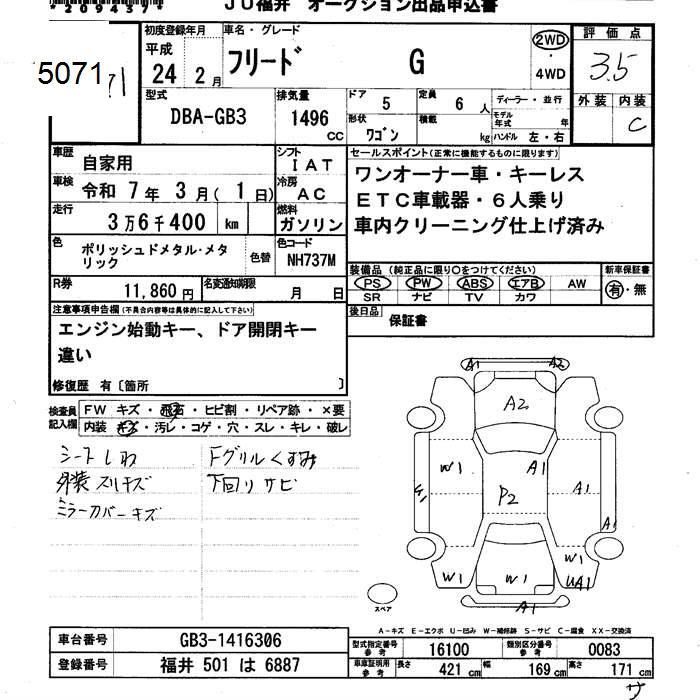 *209437*
JU福井 オークション出品申込書
5071
初度登録年月 車名・グレード
平成 24 2月 フリード G 2WD 4WD
評価点 3.5
外装 内装 C
型式 DBA-GB3
排気量 1496 cc
ドア 5 定員 6 人
形状 ワゴン 積載 kg
ディーラー・並行
モデル年式 年
ハンドル 左・右
車歴 自家用
シフト IAT
車検 令和 7年 3月( 1日)
冷房 AC
走行 3万6千400 km
燃料 ガソリン
色 ポリッシュドメタル・メタリック 色替
色コード NH737M
R券 11,860円
名変通知期限 月 日
セールスポイント(正常に機能するものに限ります)
ワンオーナー車・キーレス
ETC車載器・6人乗り
車内クリーニング仕上げ済み
装備品 (純正品に限り○をつけてください) 新車保証書
PS PW ABS エアB AW 有・無
SR ナビ TV カワ
後日品 保証書
注意事項申告欄(不具合内容等は具体的に記入して下さい)
エンジン始動キー、ドア開閉キー
違い
修復歴 有〔箇所 〕
検査員記入欄
FW キズ・飛石・ヒビ割・リペア跡・×要
内装 キズ・汚レ・コゲ・穴・スレ・キレ・破レ
シートしわ Fグリルくすみ
外装スリキズ 下回りサビ
ミラーカバーキズ
A1 A1
A2
W1 A1 A1
P2
A1
W1 W1 W1 UA1
A1
スペア
A-キズ E-エクボ U-凹み W-補修跡 S-サビ C-腐食 XX-交換済
車台番号 GB3-1416306
登録番号 福井 501 は 6887
型式指定番号 参考 16100 類別区分番号 参考 0083
車庫証明用 参考 長さ 421 cm 幅 169 cm 高さ 171 cm
サ